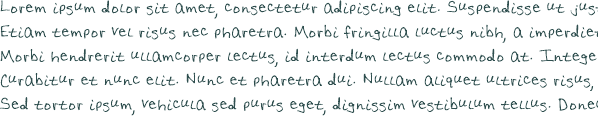 Lorem ipsum dolor sit amet, consectetur adipiscing elit. Suspendisse ut jus
Etiam tempor vel risus nec pharetra. Morbi fringilla luctus nibh, a imperdie
Morbi hendrerit ullamcorper lectus, id interdum lectus commodo at. Intege
Curabitur et nunc elit. Nunc et pharetra dui. Nullam aliquet ultrices risus,
Sed tortor ipsum, vehicula sed purus eget, dignissim vestibulum tellus. Done